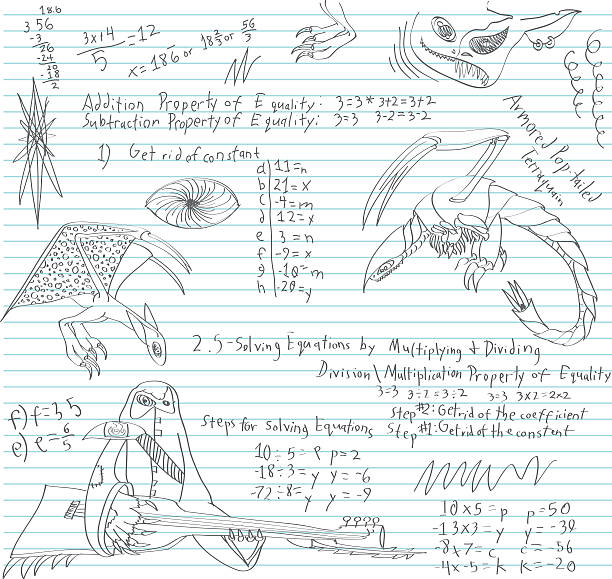 18.6
3 56
-3
26
-24
20
-18
2
3x+4 =12
5
x=18.6 or 18 2/3 or 56/3
Addition Property of Equality: 3=3* 3+2=3+2
Subtraction Property of Equality: 3=3 3-2=3-2
Armored Pop-tailed
1) Get rid of constant
a 11=n
b 21=x
c -4=m
d 12=x
e 3=n
f -9=x
g -10=m
h -20=y
2.5-Solving Equations by Multiplying + Dividing
Division\Multiplication Property of Equality
3=3 3÷2=3÷2 3=3 3x2=2x2
Step #2: Get rid of the coefficient
Step #1: Get rid of the constant
f) f=35
e) e=6/5
Steps for Solving Equations
10÷5=P P=2
-18÷3=y y=-6
-72÷8=y y=-9
10x5=p p=50
-13x3=y y=-39
-8x7=c c=-56
-4x-5=k k=-20